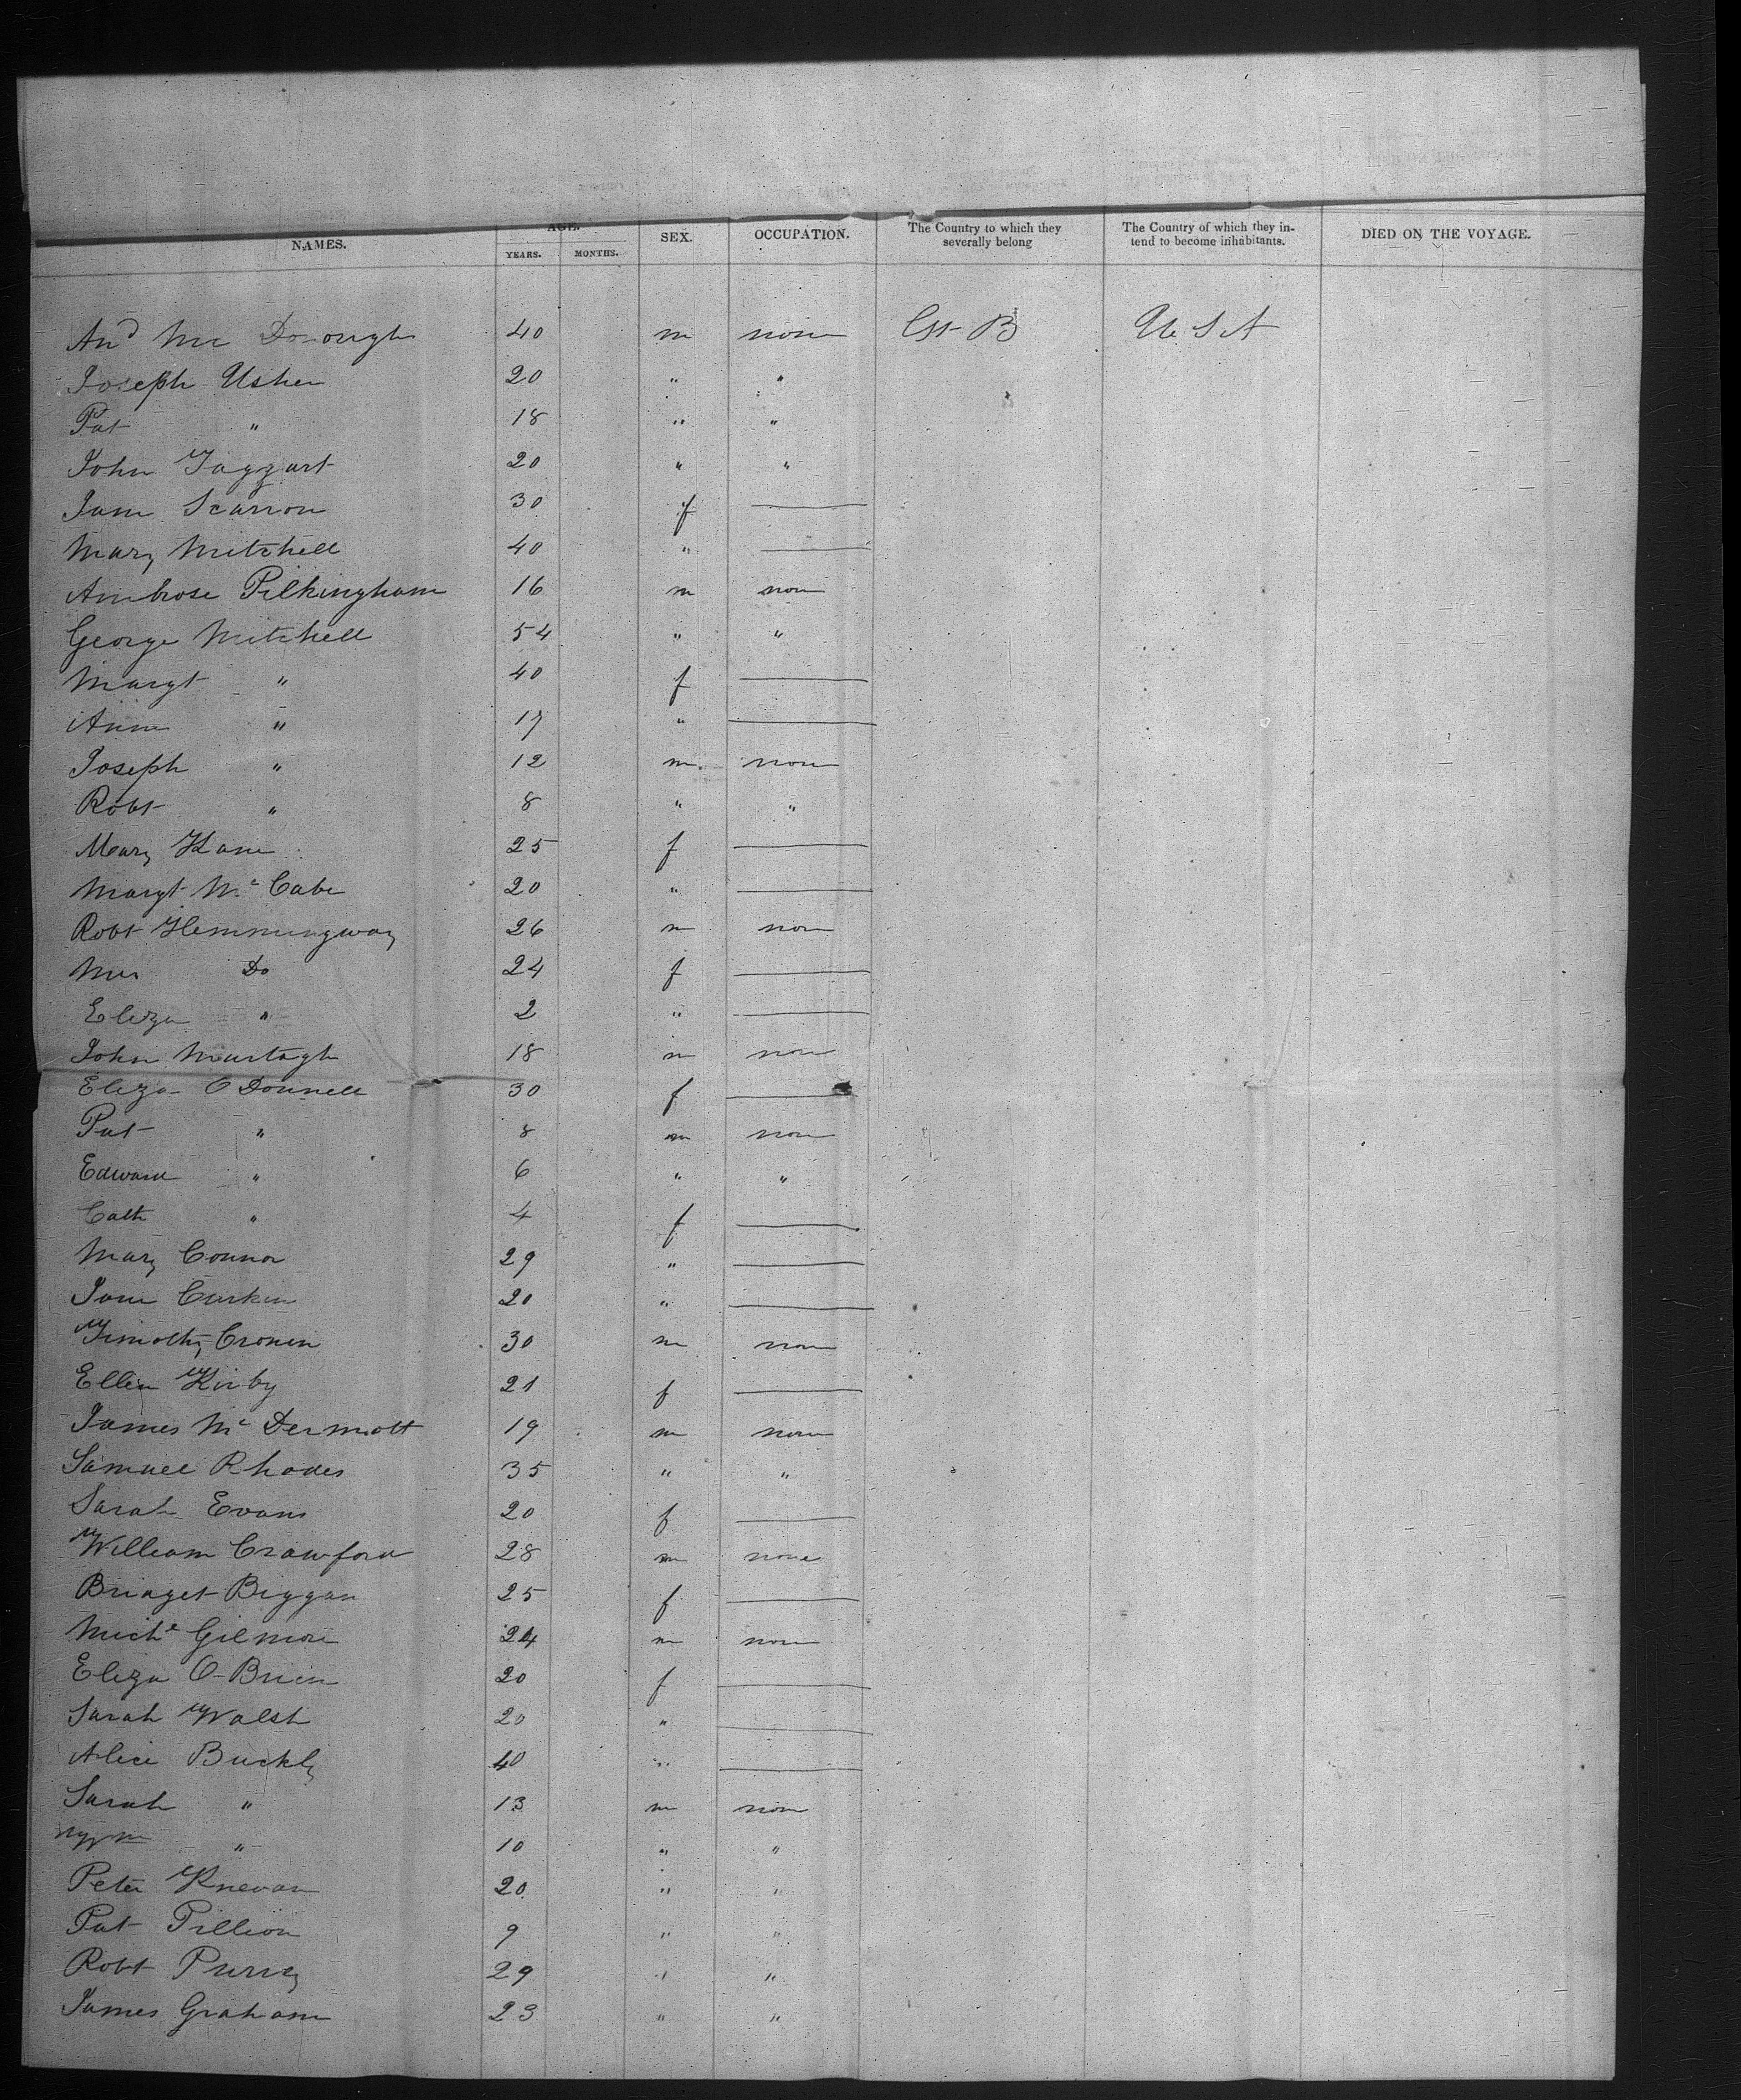 NAMES. AGE. SEX. OCCUPATION. The Country to which they severally belong The Country of which they intend to become inhabitants. DIED ON THE VOYAGE.
YEARS. MONTHS.
And Mc Donough 40 m non Gt B U S A
Joseph Usher 20 " "
Pat " 18 " "
John Taggart 20 " "
Jane Scanron 30 f —
Mary Mitchell 40 " —
Ambrose Pilkingham 16 m non
George Mitchell 54 " "
Margt " 40 f —
Ann " 17 " —
Joseph " 12 m. non
Robt " 8 " "
Mary Kane 25 f —
Margt Mc Cabe 20 " —
Robt Hemmingway 26 m non
Mrs Do 24 f —
Eliza " 2 " —
John Murtagh 18 m non
Eliza O Donnell 30 f —
Pat " 8 m non
Edward " 6 " "
Cath " 4 f —
Mary Connor 29 " —
Jane Curken 20 " —
Timothy Cronen 30 m non
Ellen Kirby 21 f —
James Mc Dermott 19 m non
Samuel Rhodes 35 " "
Sarah Evans 20 f —
William Crawford 28 m none
Bridget Biggan 25 f —
Michl Gilmore 24 m non
Eliza O Brien 20 f —
Sarah Walsh 20 " —
Alice Buckly 40 " —
Sarah " 13 m non
" 10 " "
Peter Knevan 20 " "
Pat Pillion 9 " "
Robt Purvey 29 " "
James Graham 23 " "